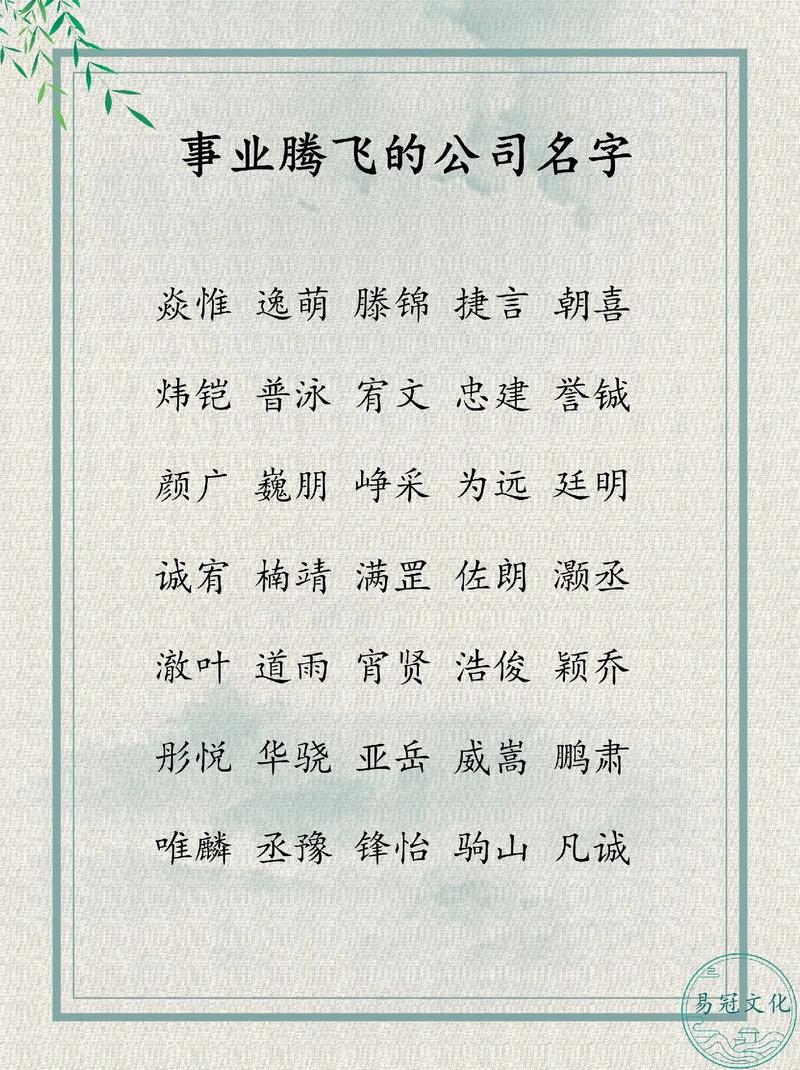 事业腾飞的公司名字
焱惟 逸萌 滕锦 捷言 朝喜
炜铠 普泳 宥文 忠建 誉铖
颜广 巍朋 峥采 为远 廷明
诚宥 楠靖 满罡 佐朗 灏丞
澈叶 道雨 宵贤 浩俊 颖乔
彤悦 华骁 亚岳 威嵩 鹏肃
唯麟 丞豫 锋怡 驹山 凡诚
易冠文化